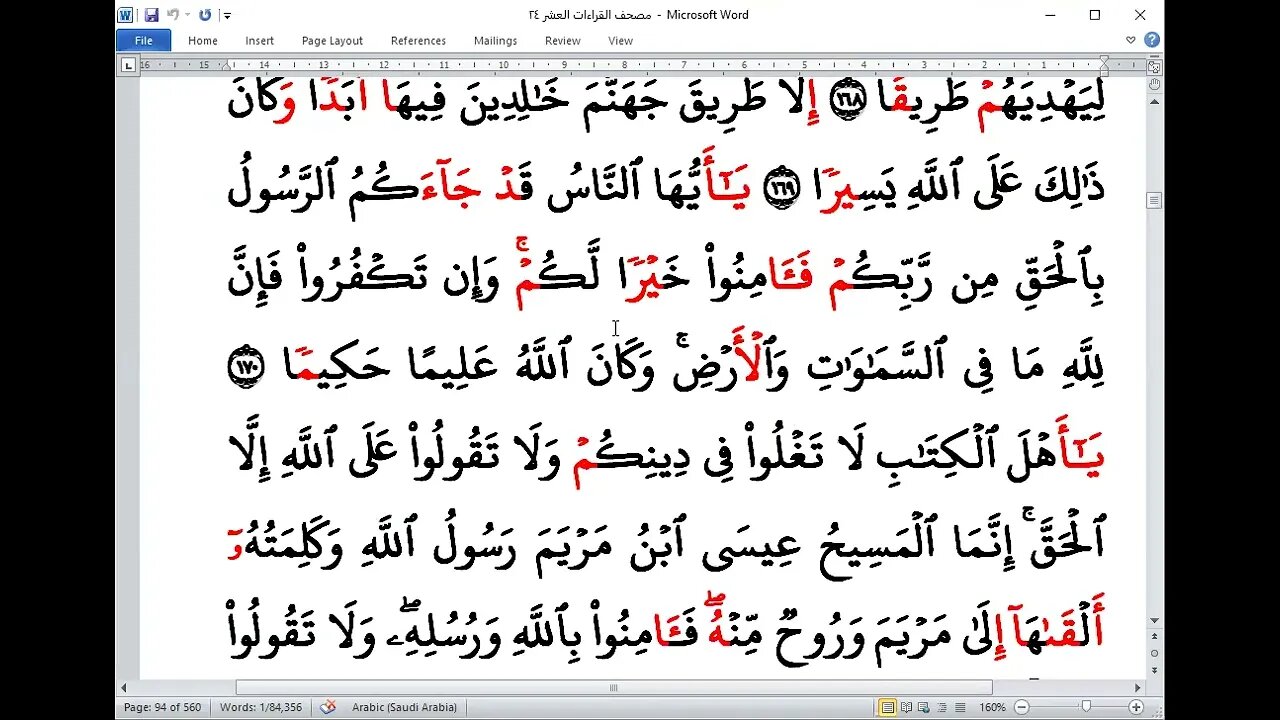 مصحف القراءات العشر ٢٤ - Microsoft Word
File Home Insert Page Layout References Mailings Review View
16 15 14 13 12 11 10 9 8 7 6 5 4 3 2 1
لِيَهْدِيَهُمْ طَرِيقًا ١٦٨ إِلَّا طَرِيقَ جَهَنَّمَ خَٰلِدِينَ فِيهَا أَبَدًا وَكَانَ
ذَٰلِكَ عَلَى ٱللَّهِ يَسِيرًا ١٦٩ يَـٰٓأَيُّهَا ٱلنَّاسُ قَدْ جَآءَكُمُ ٱلرَّسُولُ
بِٱلْحَقِّ مِن رَّبِّكُمْ فَـَٔامِنُوا۟ خَيْرًا لَّكُمْ ۚ وَإِن تَكْفُرُوا۟ فَإِنَّ
لِلَّهِ مَا فِى ٱلسَّمَٰوَٰتِ وَٱلْأَرْضِ ۚ وَكَانَ ٱللَّهُ عَلِيمًا حَكِيمًا ١٧٠
يَـٰٓأَهْلَ ٱلْكِتَٰبِ لَا تَغْلُوا۟ فِى دِينِكُمْ وَلَا تَقُولُوا۟ عَلَى ٱللَّهِ إِلَّا
ٱلْحَقَّ ۚ إِنَّمَا ٱلْمَسِيحُ عِيسَى ٱبْنُ مَرْيَمَ رَسُولُ ٱللَّهِ وَكَلِمَتُهُۥٓ
أَلْقَىٰهَآ إِلَىٰ مَرْيَمَ وَرُوحٌ مِّنْهُ ۖ فَـَٔامِنُوا۟ بِٱللَّهِ وَرُسُلِهِۦ ۖ وَلَا تَقُولُوا۟
Page: 94 of 560 Words: 1/84,356 Arabic (Saudi Arabia) 160%